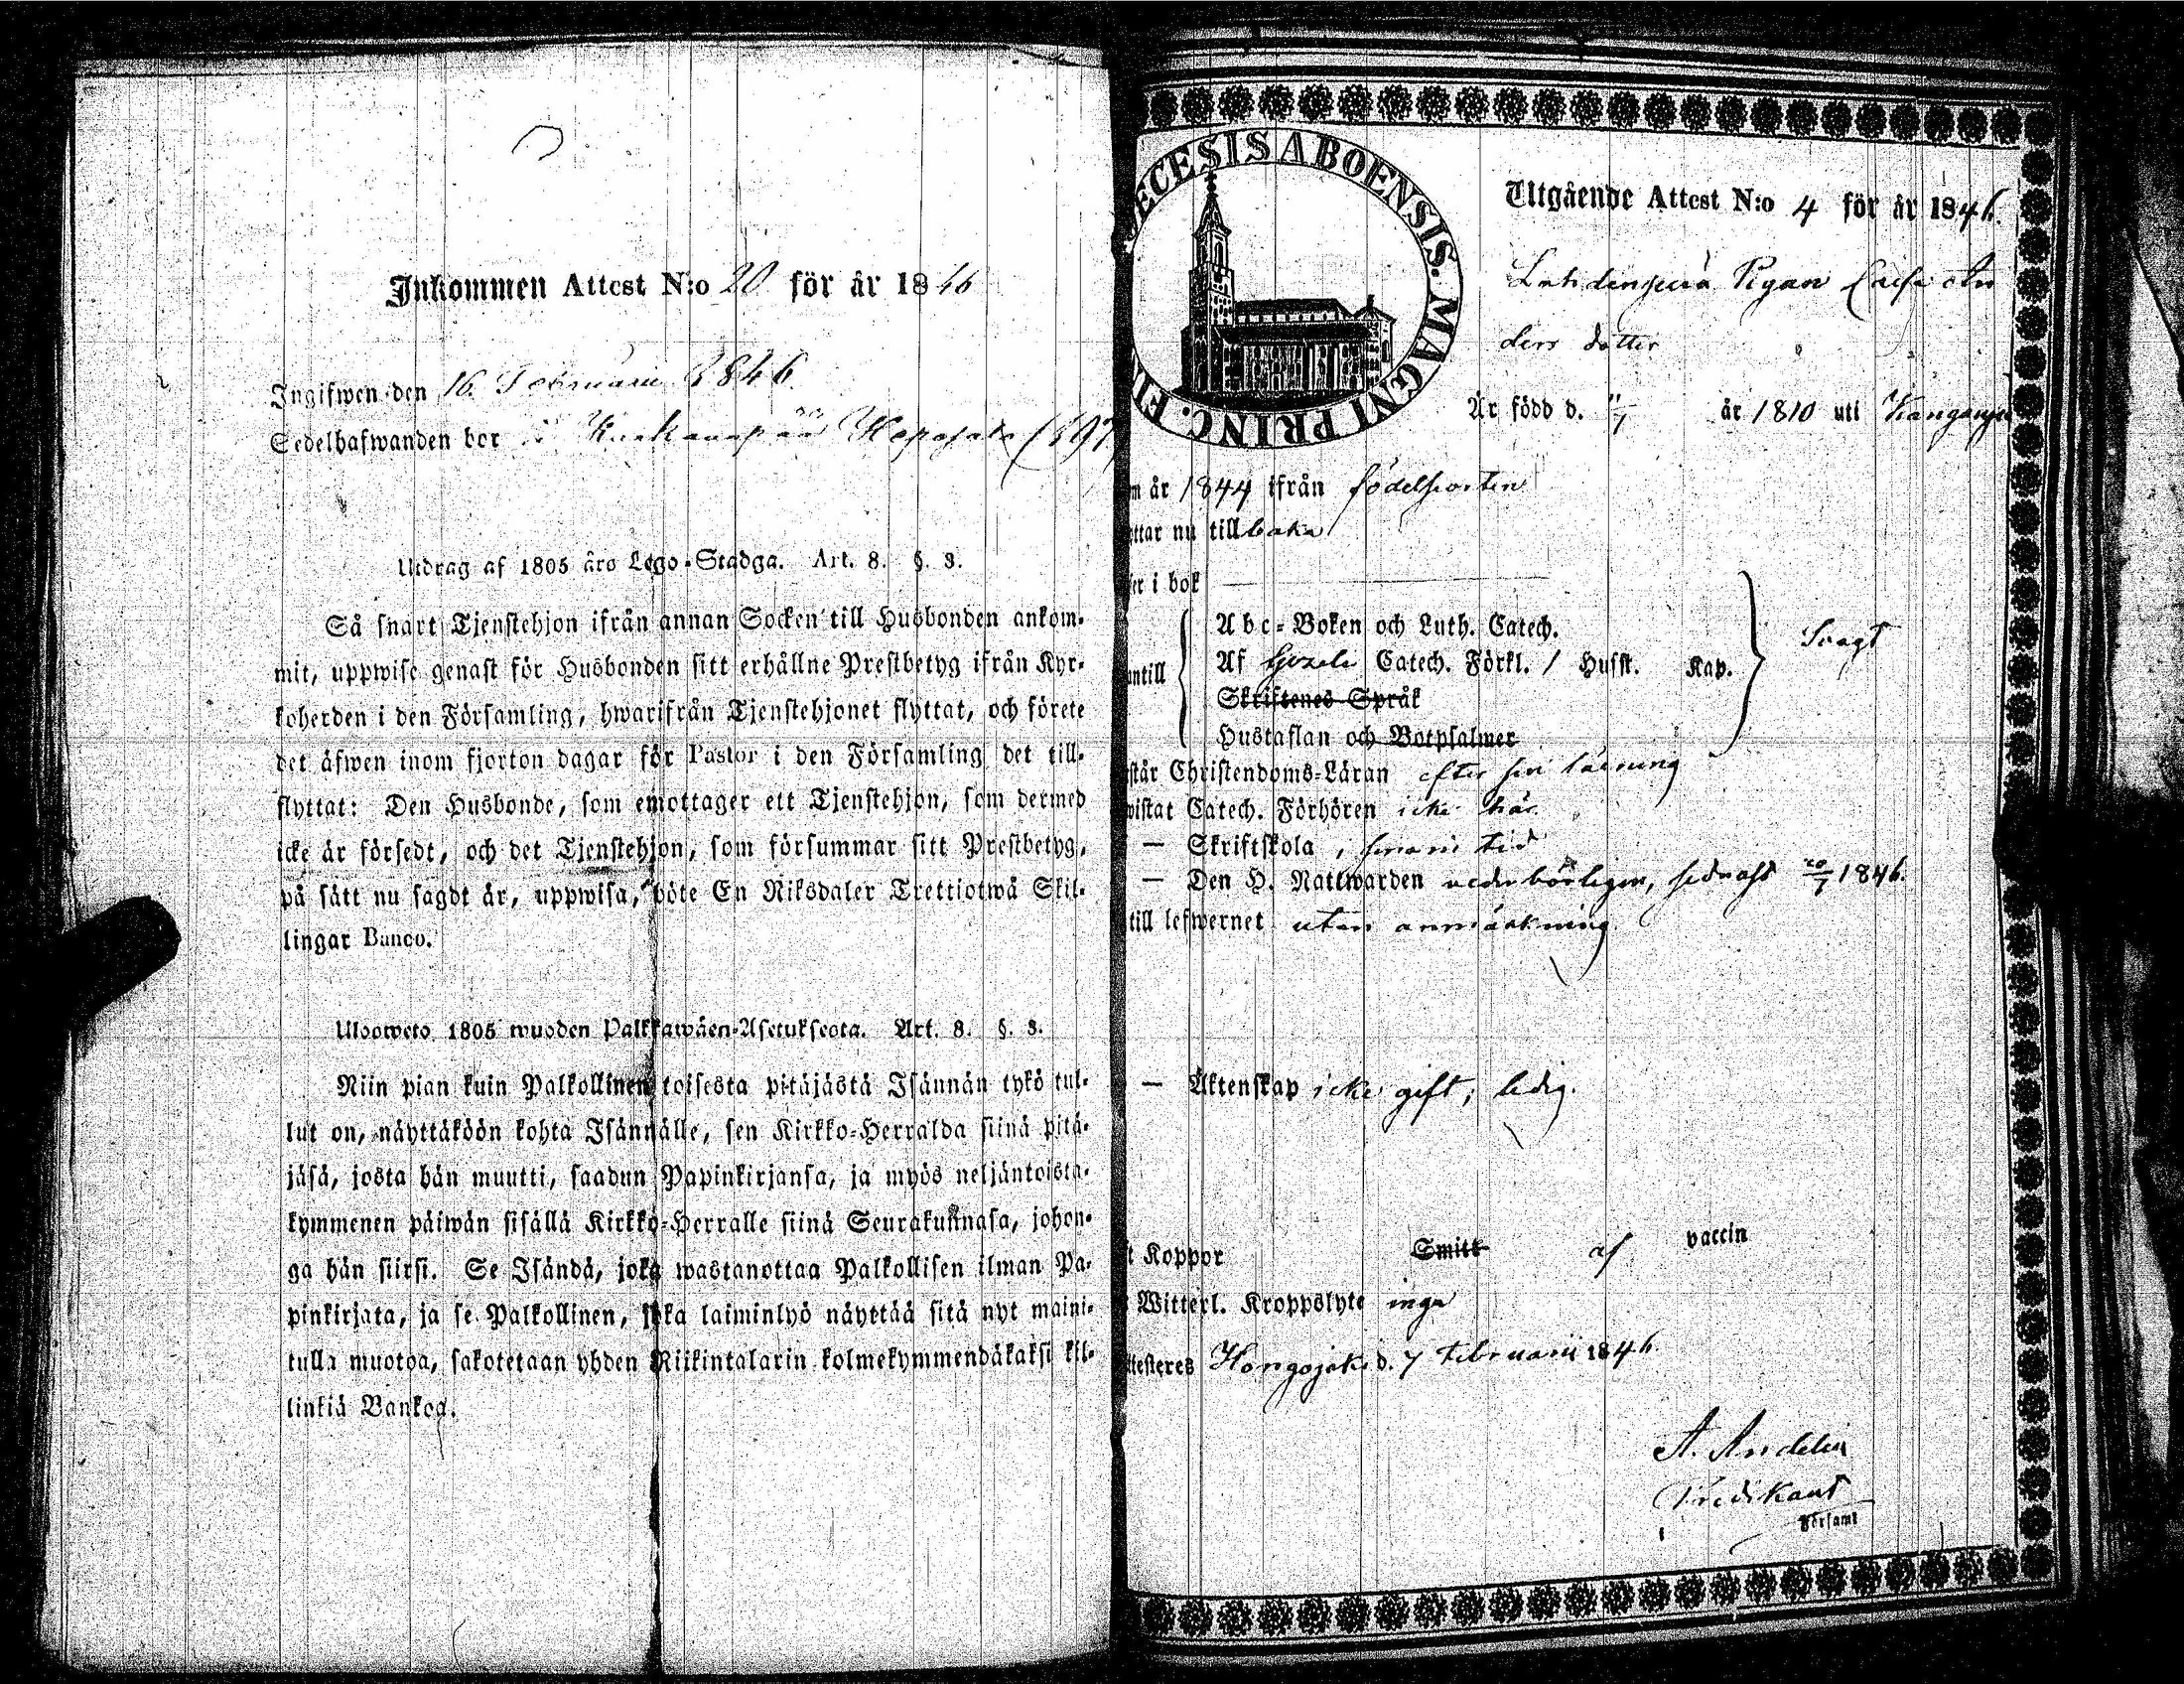 Inkommen Attest N:o 20 för år 1846
Ingifwen den 16. Februarii 1846
Sedelhafwanden bor i Kuakanapää (197
Utdrag af 1805 års Lego-Stadga. Art. 8. §. 3.
Så snart Tjenstehjon ifrån annan Socken till Husbonden ankom-
mit, uppwise genast för Husbonden sitt erhållne Prestbetyg ifrån Kyr-
koherden i den Församling, hwarifrån Tjenstehjonet flyttat, och förete
det äfwen inom fjorton dagar för Pastor i den Församling det till-
flyttat: Den Husbonde, som emottager ett Tjenstehjon, som dermed
icke är försedt, och det Tjenstehjon, som försummar sitt Prestbetyg,
på sätt nu sagdt är, uppwisa, böte En Riksdaler Trettiotwå Skil-
lingar Banco.
Ulosweto 1805 wuoden Palkkawäen-Asetuksesta. Art. 8. §. 3.
Niin pian kuin Palkollinen toisesta pitäjästä Isännän tykö tul-
lut on, näyttäköön kohta Isännälle, sen Kirkko-Herralda siinä pitä-
jäsä, josta hän muutti, saadun Papinkirjansa, ja myös neljäntoista-
kymmenen päiwän sisällä Kirkko-Herralle siinä Seurakunnasa, johon-
ga hän siirsi. Se Isändä, joka wastanottaa Palkollisen ilman Pa-
pinkirjata, ja se Palkollinen, joka laiminlyö näyttää sitä nyt maini-
tulla muotoa, sakotetaan yhden Riikintalarin kolmekymmendäkaksi kil-
linkiä Bankoa.
ECESIS ABOENSIS. MAGNI PRINC. FI
Utgående Attest N:o 4 för år 1846.
Lahdenperä Pigan Caisa An
ders dotter
Är född d. 11/1 år 1810 uti
m år 1844 ifrån födelseorten
ttar nu tillbaka
er i bok
Abc-Boken och Luth. Catech.
antill Af Catech. Förkl. / Husst. Kap. Svagt
Skriftenes Språk
Hustaflan och Botpsalmer
står Christendoms-Läran efter sin läsning
wistat Catech. Förhören icke här.
— Skriftskola, tid
— Den H. Nattwarden vederbörligen, sednast 1846.
till lefwernet utan anmärkning.
— Äktenskap icke gift, ledig.
t Koppor Smitt af vaccin
Witterl. Kroppslyte inga
ttesteres Hongojoki d. 7 Februarii 1846.
A. Andelin
Predikant
Församl